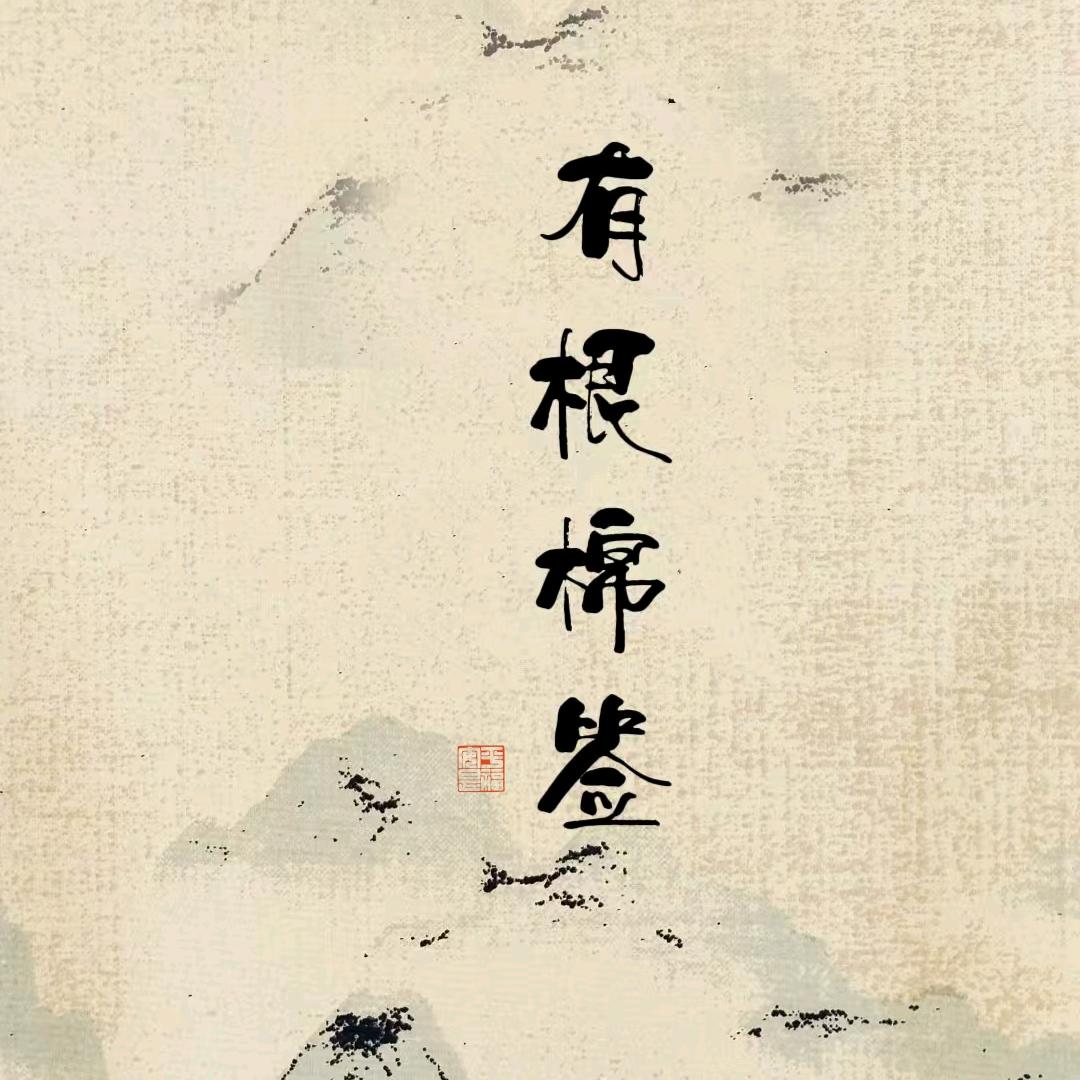 有根棉签